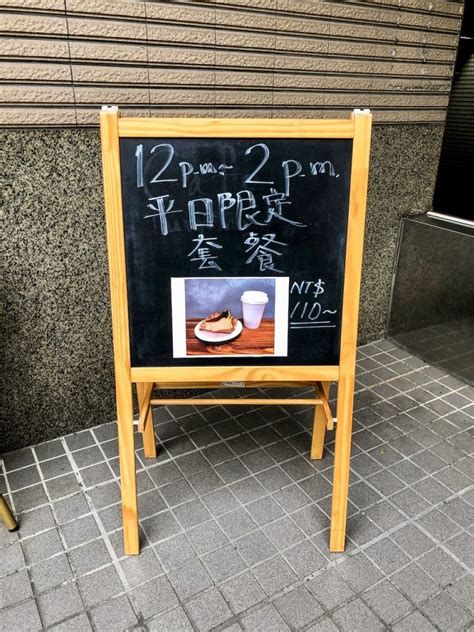 12 p.m. ~ 2 p.m.
平日限定
套餐
NT$
110~